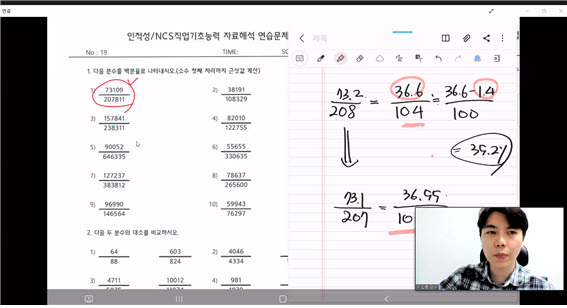 연결
인적성/NCS직업기초능력 자료해석 연습문제
No : 19 TIME:
1. 다음 분수를 백분율로 나타내시오.(소수 첫째 자리까지 근삿값 계산)
1) 73109/207811 2) 38191/108329
3) 157841/238311 4) 82010/122755
5) 90052/646335 6) 55655/330635
7) 127237/383812 8) 78637/265600
9) 96990/146564 10) 59943/76297
2. 다음 두 분수의 대소를 비교하시오.
1) 64/88 603/824 2) 4046/4334
3) 4711 10012 4) 981
제목
73.2/208 = 36.6/104 = 36.6-1.4/100
= 35.2%
73.1/207 = 36.55/10